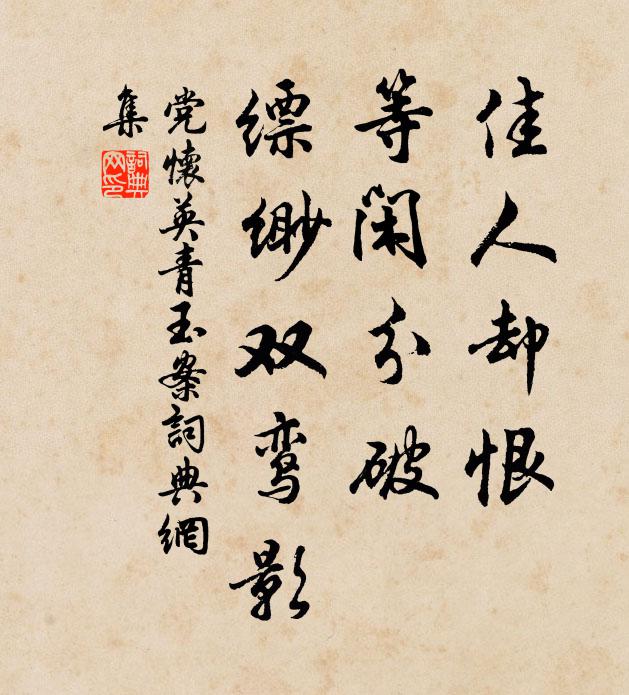 佳人却恨
等闲分破
缥缈双鸾影
党怀英青玉案詞典網
集
詞典網印